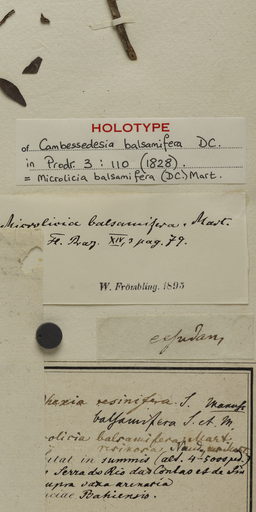 HOLOTYPE
of Cambessedesia balsamifera DC.
in Prodr. 3 : 110 (1828).
= Microlicia balsamifera (DC.) Mart.
Microlicia balsamifera, Mart.
Fl. Braz. XIV, 3 pag. 79.
W. Frömbling. 1895
resinifera S.
balsamifera S. et M.
olicia balsamifera Mart.
in summis (alt. 4-5000
Serra do Rio das Contas et de
supra saxa arenaria
ciae Bahiensis.